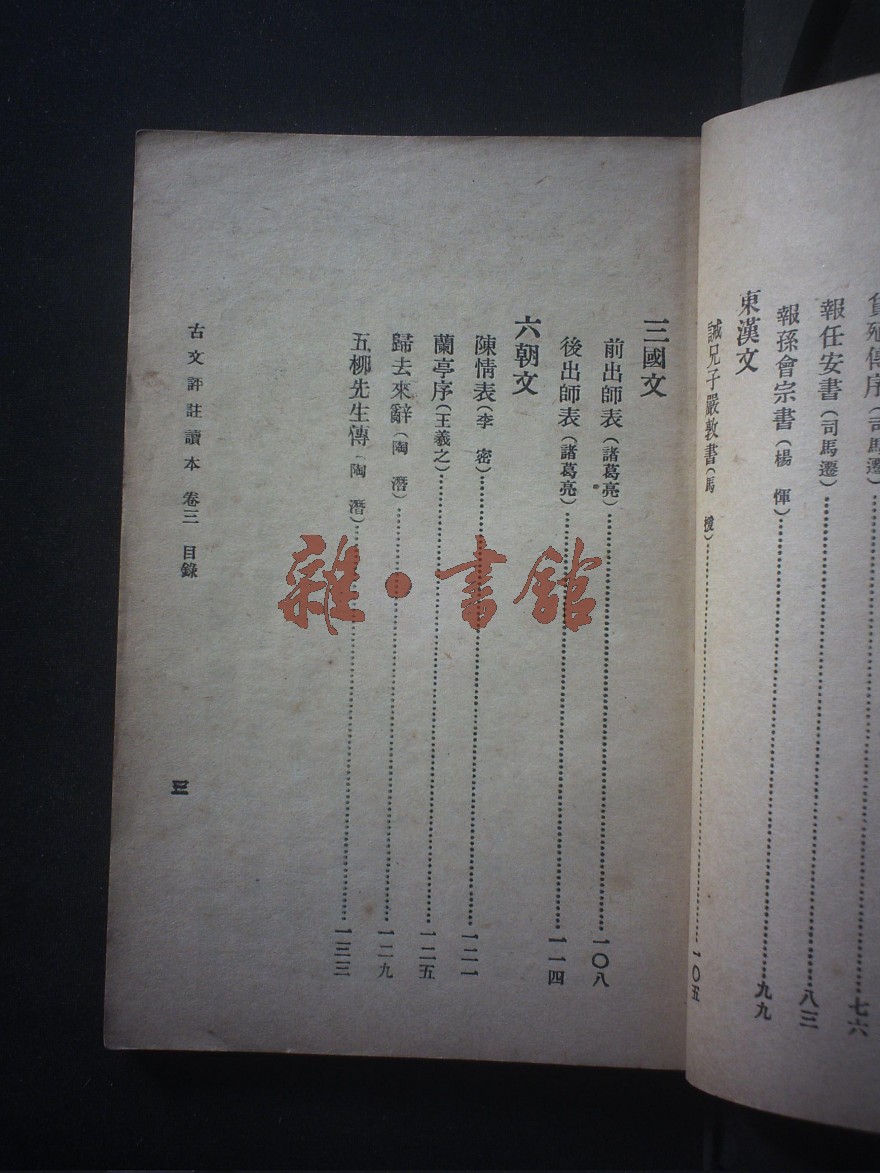 貨殖傳序(司馬遷)……七六
報任安書(司馬遷)……八三
報孫會宗書(楊惲)……九九
東漢文
誡兄子嚴敦書(馬援)……一〇五
三國文
前出師表(諸葛亮)……一〇八
後出師表(諸葛亮)……一一四
六朝文
陳情表(李密)……一二一
蘭亭序(王羲之)……一二五
歸去來辭(陶潛)……一二九
五柳先生傳(陶潛)……一三三
古文評註讀本 卷三 目錄
三
雜·書館